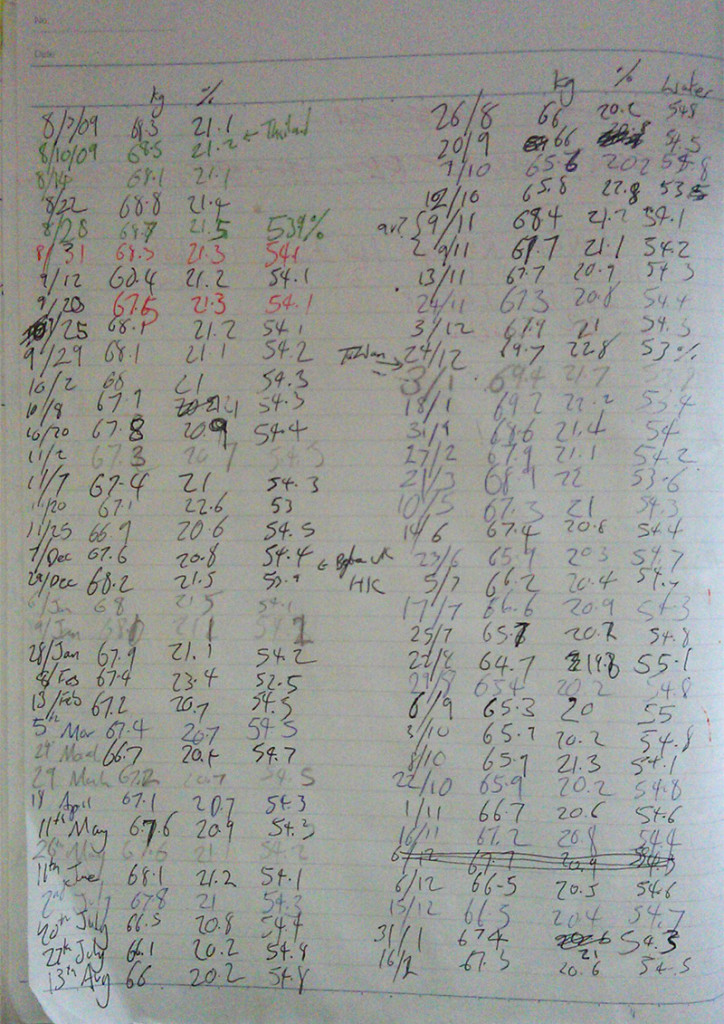 No.
Date
kg %
8/7/09 68.3 21.1
8/10/09 68.5 21.2 ← Thailand
8/14 68.1 21.1
8/22 68.8 21.4
8/28 68.7 21.5 53.9%
8/31 68.3 21.3 54.1
9/12 21.2 54.1
9/20 67.5 21.3 54.1
/25 68.1 21.2 54.1
9/29 68.1 21.1 54.2
10/2 68 21 54.3
10/8 67.7 21 54.3
10/20 67.8 20.9 54.4
11/2 67.3 20.7 54.5
11/7 67.4 21 54.3
11/20 67.1 22.6 53
11/25 66.9 20.6 54.5
7/Dec 67.6 20.8 54.4 ← Before UK
/Dec 68.2 21.5 53.9 HK
6/Jan 68 21.5 54.1
9/Jan 68.0 21.1 54.2
28/Jan 67.9 21.1 54.2
8/Feb 67.4 23.4 52.5
13/Feb 67.2 20.7 54.5
5th Mar 67.4 20.7 54.5
March 66.7 54.7
29 March 67.2 20.7 54.5
April 67.1 20.7 54.3
11th May 67.6 20.9 54.3
26th May 67.6 21 54.2
11th June 68.1 21.2 54.1
2nd July 67.8 21 54.3
20th July 66.5 20.8 54.4
22th July 66.1 20.2 54.8
13th Aug 66 20.2 54.8
kg % Water
26/8 66 20.2 54.8
20/9 66 54.5
7/10 65.6 20.2 54.8
12/10 65.8 22.8 53.5
9/11 68.4 21.2 54.1
9/11 67.7 21.1 54.2
13/11 67.7 20.9 54.3
24/11 67.3 20.8 54.4
3/12 67.9 21 54.3
Taiwan → 24/12 69.7 22.8 53%
3/1 69.4 21.7 53.8
18/1 69.2 22.2 53.4
31/1 68.6 21.4 54
27/2 67.9 21.1 54.2
21/3 68.1 22 53.6
10/5 67.3 21 54.3
14/6 67.4 20.8 54.4
23/6 65.9 20.3 54.7
5/7 66.2 20.4 54.7
17/7 66.6 20.9 54.3
25/7 65.7 20.2 54.8
22/8 64.7 19.8 55.1
29/8 65.4 20.2 54.8
6/9 65.3 20 55
3/10 65.7 20.2 54.8
8/10 65.9 21.3 54.1
22/10 65.9 20.2 54.8
1/11 66.7 20.6 54.6
16/11 67.2 20.8 54.4
6/12 67.7 20.9
6/12 66.5 20.5 54.6
15/12 66.5 20.4 54.7
31/1 67.4 21 54.3
16/2 67.3 20.6 54.5